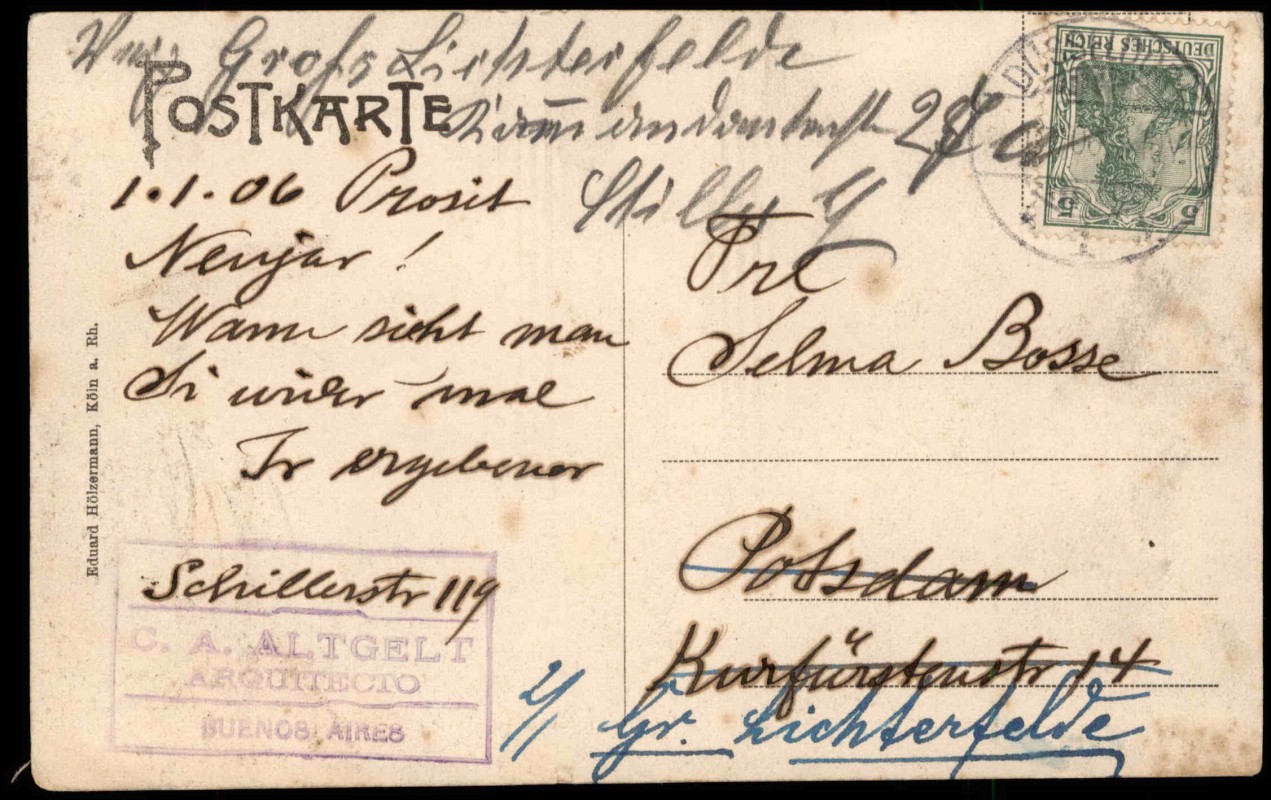 Groß Lichterfelde
POSTKARTE
1.1.06 Prosit
Neujar!
Wann siht man
Si wider mal
Ir ergebener
Schillerstr 119
C. A. ALTGELT
ARQUITECTO
BUENOS AIRES
Eduard Hölzermann, Köln a. Rh.
DEUTSCHES REICH
5 5
Frl
Selma Bosse
Potsdam
Kurfürstenstr 14
Gr. Lichterfelde